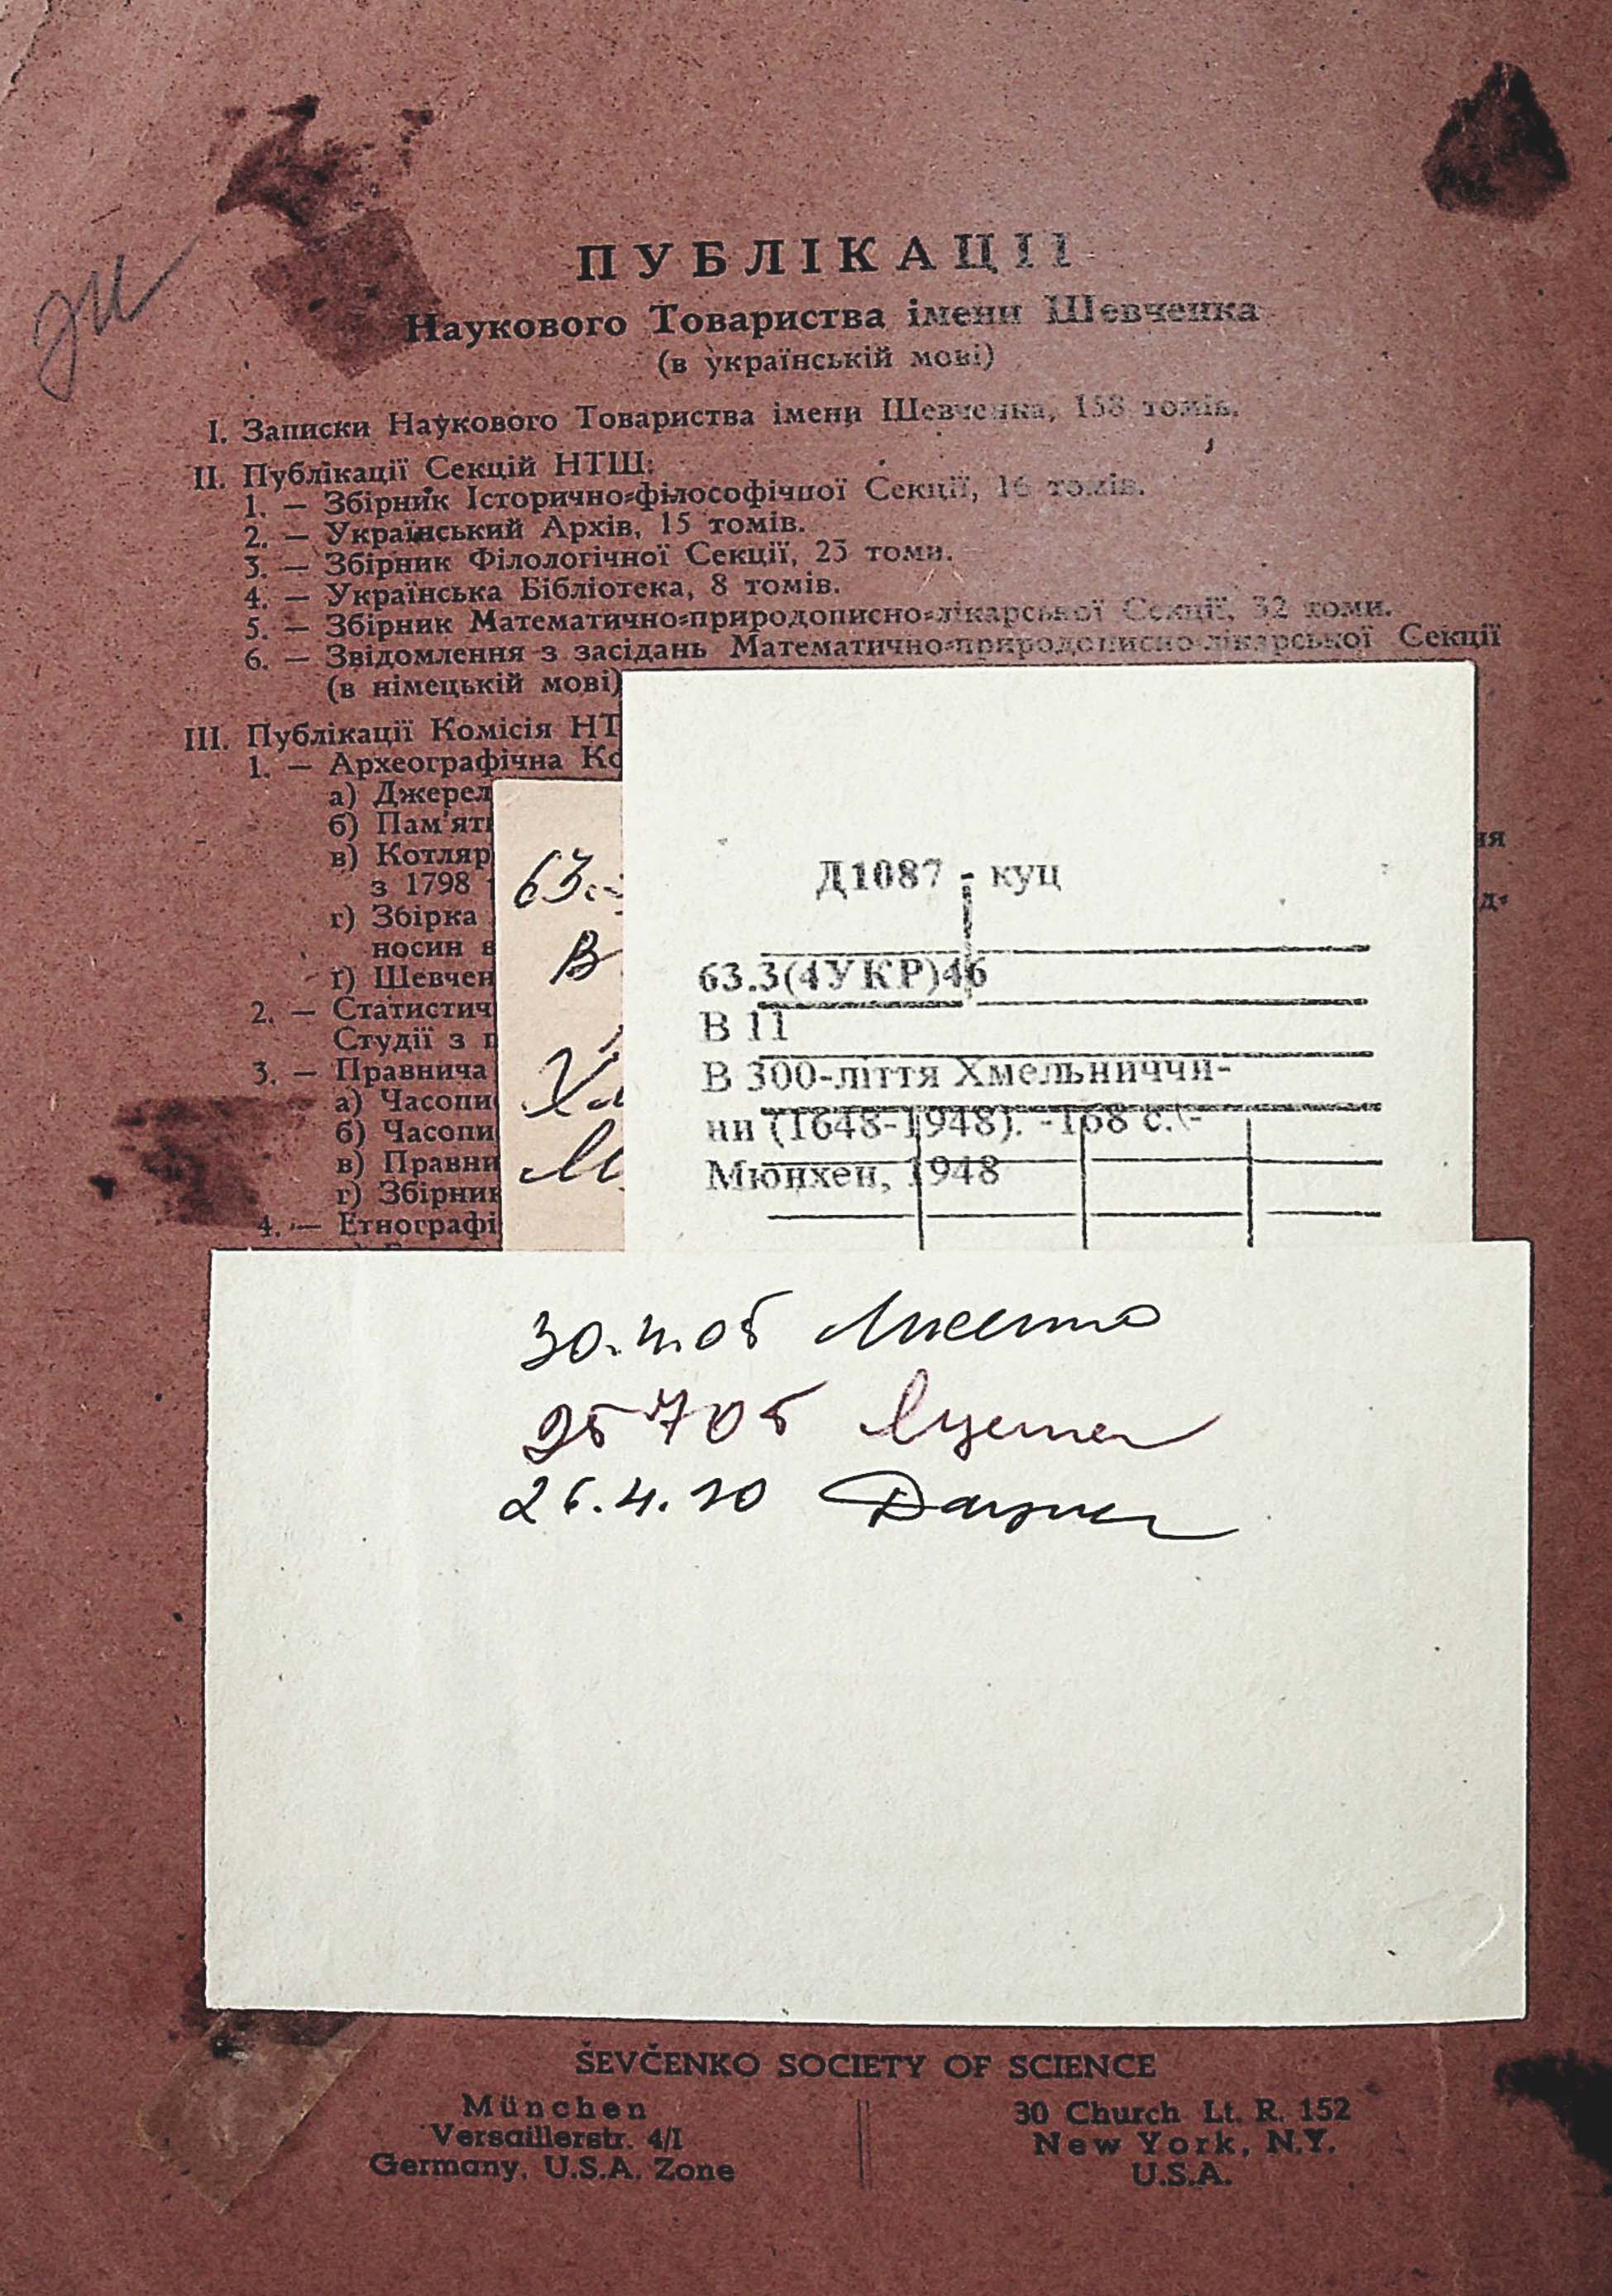 ПУБЛІКАЦІЇ
Наукового Товариства імени Шевченка
(в українській мові)
I. Записки Наукового Товариства імени Шевченка, 158 томів.
II. Публікації Секцій НТШ:
1. — Збірник Історично-філософічної Секції, 16 томів.
2. — Український Архів, 15 томів.
3. — Збірник Філологічної Секції, 23 томи.
4. — Українська Бібліотека, 8 томів.
5. — Збірник Математично-природописно-лікарської Секції, 32 томи.
6. — Звідомлення з засідань Математично-природописно-лікарської Секції
(в німецькій мові)
III. Публікації Комісія НТ
1. — Археографічна Ко
а) Джерел
б) Пам'ят
в) Котляр
з 1798
г) Збірка
носин в
ґ) Шевчен
2. — Статистич
Студії з п
3. — Правнича
а) Часопи
б) Часопи
в) Правни
г) Збірник
4. — Етнографі
ня
д-
63.
В
Хм
М
Д1087 - куц
63.3(4УКР)46
В 11
В 300-ліття Хмельниччи-
ни (1648-1948). -168 с.\-
Мюнхен, 1948
30.4.05
25 7 05
26.4.10
ŠEVČENKO SOCIETY OF SCIENCE
München
Versaillerstr. 4/I
Germany, U.S.A. Zone
30 Church Lt. R. 152
New York, N.Y.
U.S.A.